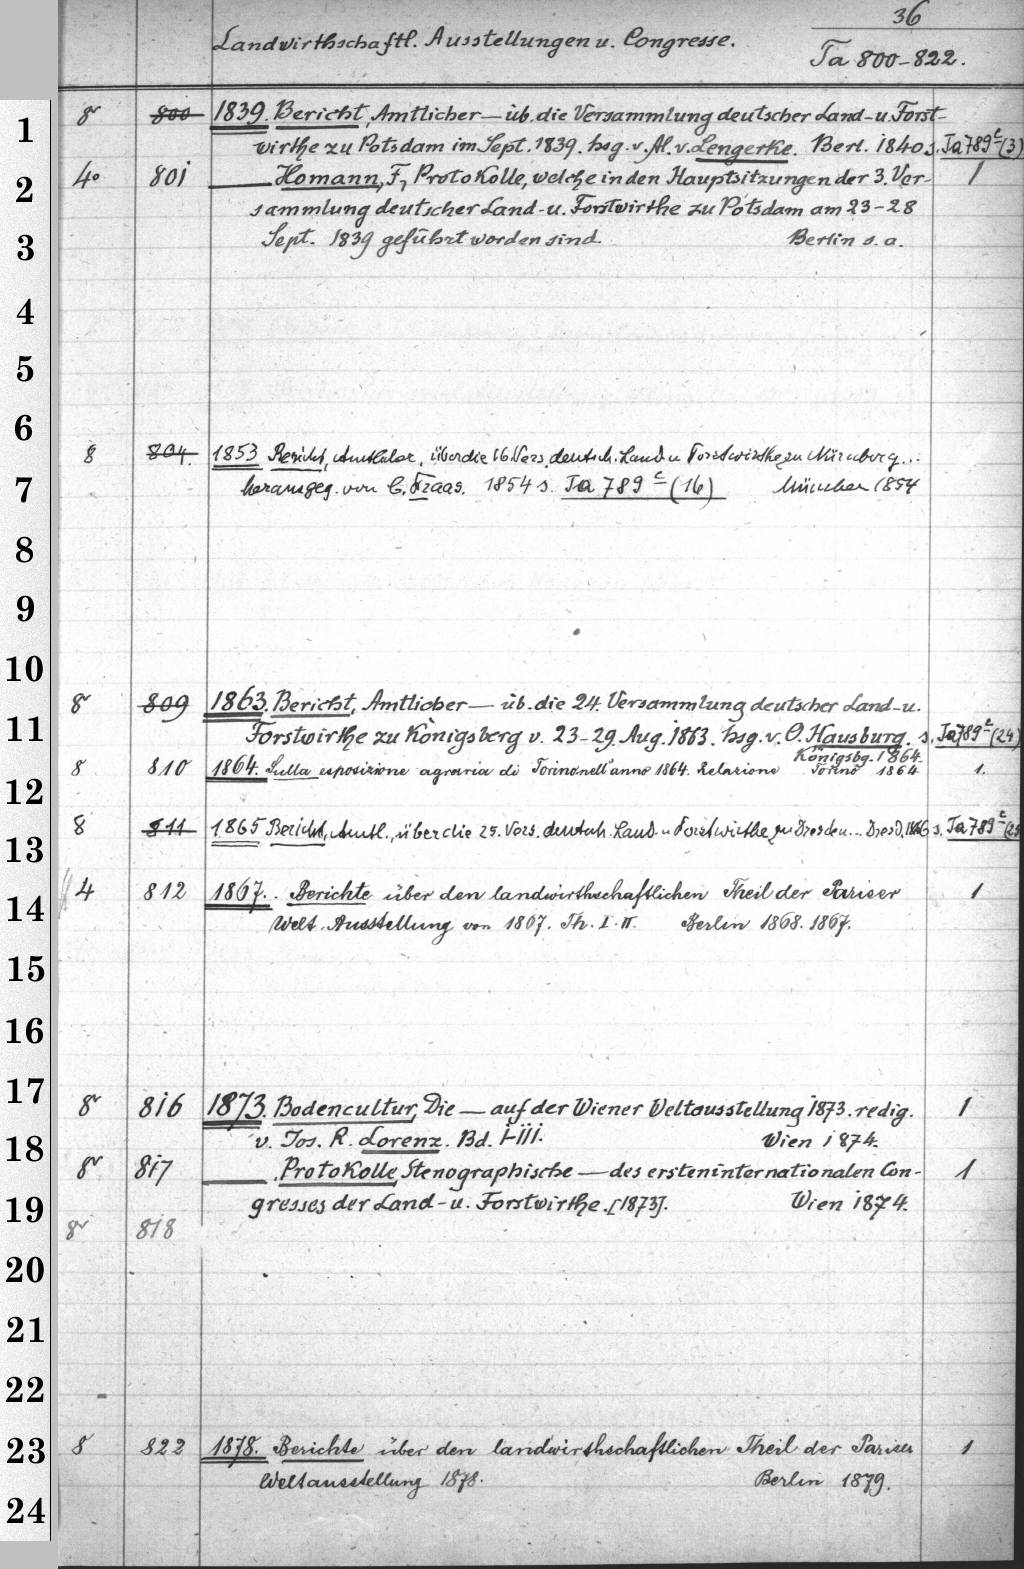 36
Landwirthschaftl. Ausstellungen u. Congresse.
Ta 800-822.
1 8° 800 1839. Bericht, Amtlicher — üb. die Versammlung deutscher Land- u. Forst-
wirthe zu Potsdam im Sept. 1839. hsg. v. Al. v. Lengerke. Berl. 1840 s. Ta 789 c (3)
2 4° 801 — Homann, F., Protokolle, welche in den Hauptsitzungen der 3. Ver- 1
sammlung deutscher Land- u. Forstwirthe zu Potsdam am 23-28
3 Sept. 1839 geführt worden sind. Berlin s. a.
4
5
6
8 804. 1853 Bericht, Amtlicher, über die 16. Vers. deutsch. Land u Forstwirthe zu Nürnberg...
7 herausgeg. von C. Fraas. 1854 s. Ta 789 c (16) München 1854
8
9
10
8° 809 1863. Bericht, Amtlicher — üb. die 24. Versammlung deutscher Land- u.
11 Forstwirthe zu Königsberg v. 23-29. Aug. 1863. hsg. v. O. Hausburg. s. Ta 789 c (24)
Königsbg. 1864.
8 810 1864. Sulla esposizione agraria di Torino nell'anno 1864. Relazione Torino 1864 1.
12
8 811 1865 Bericht, Amtl., über die 25. Vers. deutsch. Land u Forstwirthe zu Dresden... Dresd. 1866 s. Ta 789 c (25
13
14 4 812 1867. Berichte über den landwirthschaftlichen Theil der Pariser 1
Welt-Ausstellung von 1867. Th. I. II. Berlin 1868. 1867.
15
16
17
8° 816 1873. Bodencultur, Die — auf der Wiener Weltausstellung 1873. redig. 1
18 v. Jos. R. Lorenz. Bd. I-III. Wien 1874.
8° 817 — Protokolle, Stenographische — des ersten internationalen Con- 1
19 gresses der Land- u. Forstwirthe. [1873]. Wien 1874.
8° 818
20
21
22
23 8 822 1878. Berichte über den landwirthschaftlichen Theil der Pariser 1
Weltausstellung 1878. Berlin 1879.
24